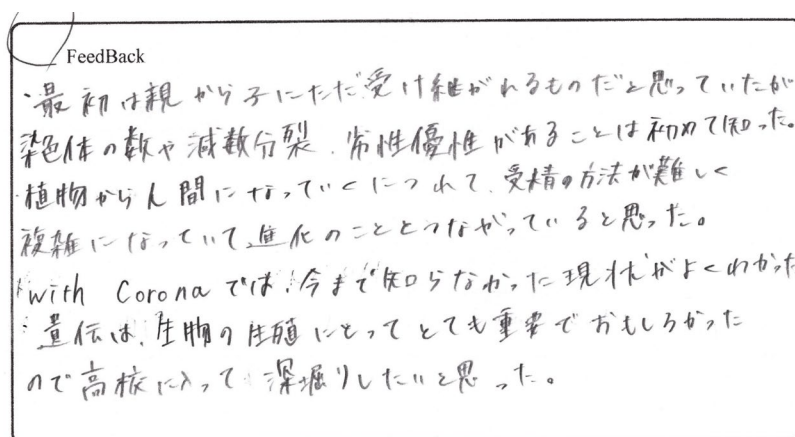 FeedBack
・最初は親から子にただ受け継がれるものだと思っていたが
染色体の数や減数分裂、常性優性があることは初めて知った。
・植物から人間になっていくにつれて、受精の方法が難しく
複雑になっていて進化のこととつながっていると思った。
with Coronaでは、今まで知らなかった現状がよくわかった
・遺伝は、生物の生殖にとってとても重要でおもしろかった
ので高校に入って深堀りしたいと思った。